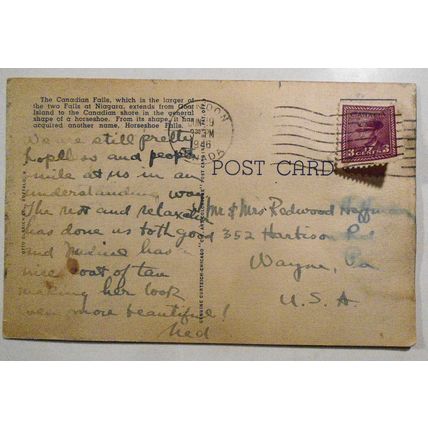 The Canadian Falls, which is the larger of
the two Falls at Niagara, extends from Goat
Island to the Canadian shore in the general
shape of a horseshoe. From its shape, it has
acquired another name, Horseshoe Falls.
We are still pretty
hopeless and people
smile at us in an
understanding way
The rest and relaxation
has done us both good
and has a
nice coat of tan
making her look
even more beautiful!
Ned
1946
POST CARD
Mr & Mrs Redwood Hoffman
352 Harrison Rd
Wayne, Pa
U.S.A.
3 3